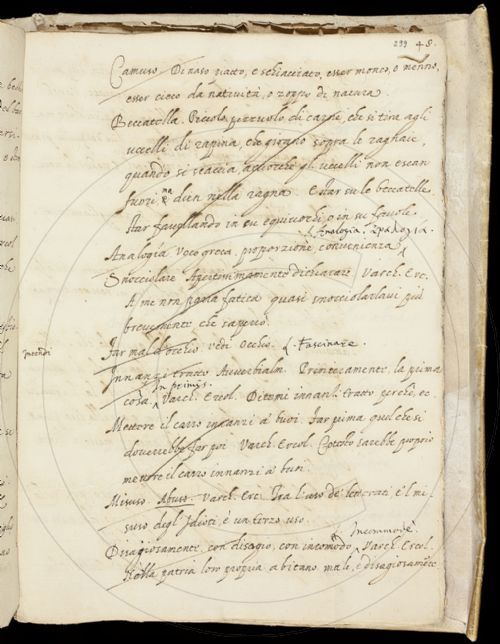 299 48.
Camuso. Di naso piatto, e schiacciato, esser monco, o menno,
esser cieco da natività, o zoppo di natura.
Beccatella. Piccolo pezzuolo di carne, che si tira agli
uccelli di rapina, che girano sopra le ragnaie,
quando si scaccia, acciocché gl'uccelli non escan
fuori ma dien nella ragna. E star su le beccatelle
star favellando in su equivochi, o in su favole.
Analogia. ἀναλογία.
Analogia. Voce greca, proporzione, convenienza
Snocciolare. Apertissimamente dichiarare. Varch. Erc.
A me non pareva fatica quasi snocciolarlavi più
brevemente che sapessi.
Far mal d'occhio vedi Occhio. Fascinare.
intendi
Innanzi tratto. Avverbialm. Primieramente, la prima
In primis.
cosa. Varch. Ercol. Ditemi innanzi tratto, perché, ec.
Mettere il carro innanzi a' buoi. Far prima quel che si
doverrebbe far poi. Varch. Ercol. Cotesto sarebbe proprio
mettere il carro innanzi a' buoi.
Misuso. Abuso. Varch. Erc. Tra l'uso de' letterati, e 'l mi-
suso degl'Idioti, è un terzo uso.
Incommode.
Disagiosamente, con disagio, con incomodo. Varch. Ercol.
Nella patria loro propria abitano male, e disagiosamente